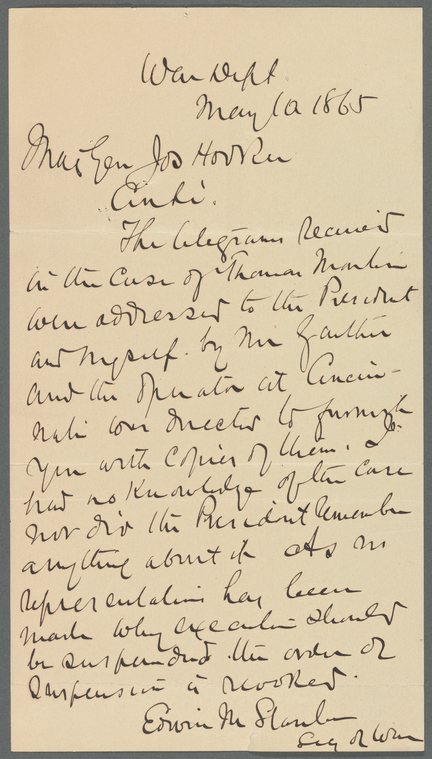 War Dept
May 10 1865
Maj Gen Jos Hooker
Cinti.
The telegrams received
in the case of Thomas
were addressed to the President
and myself. by Mr Gauther
and the operator at Cincin-
nati was directed to furnish
you with copies of them. I
had no knowledge of the case
nor did the President remember
anything about it As no
representations has been
made why execution should
be suspended the order of
suspension is revoked.
Edwin M Stanton
Secy of War